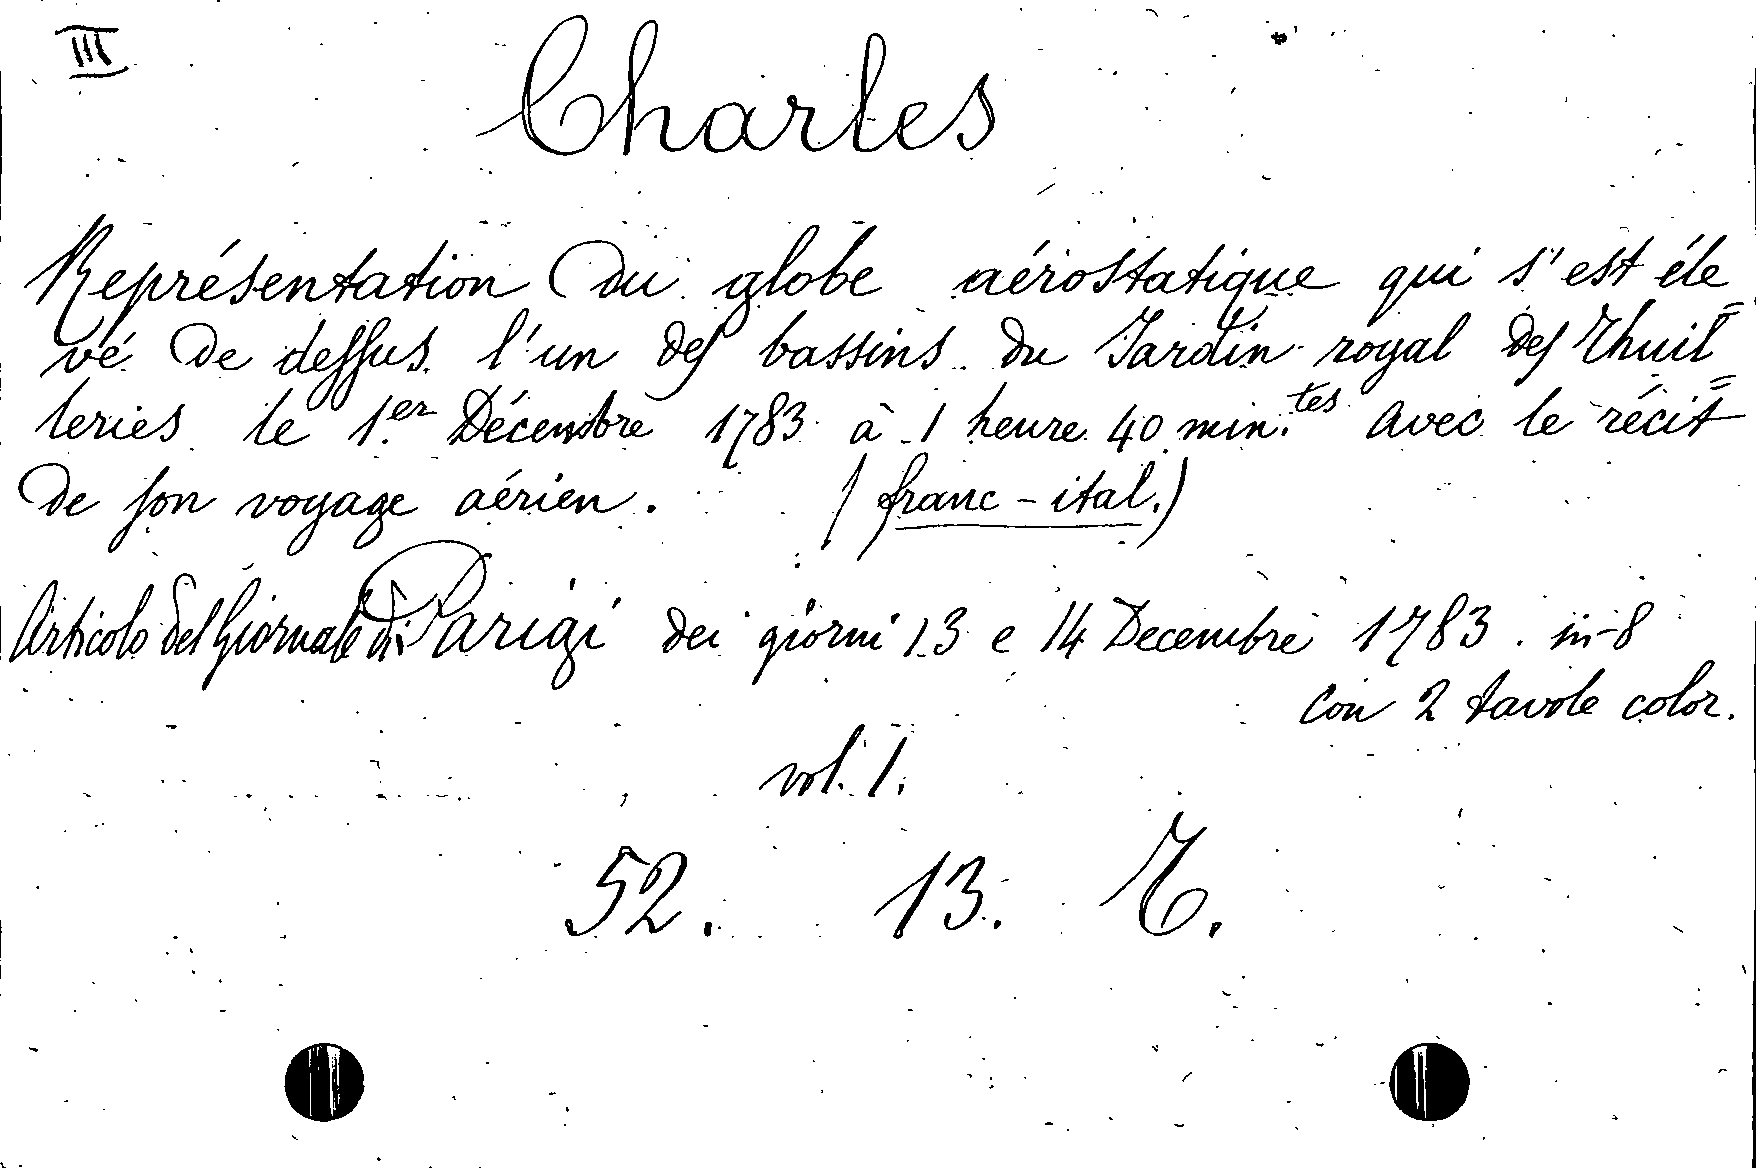 III
Charles
Représentation du globe aérostatique qui s'est éle=
vé de dessus l'un des bassins du Jardin royal des Thuil=
leries le 1.er Décembre 1783 à 1 heure 40 min.tes avec le récit
de son voyage aérien. (franc-ital.)
Articolo del Giornale di Parigi dei giorni 13 e 14 Decembre 1783. in-8
con 2 tavole color.
vol. 1.
52. 13. E.